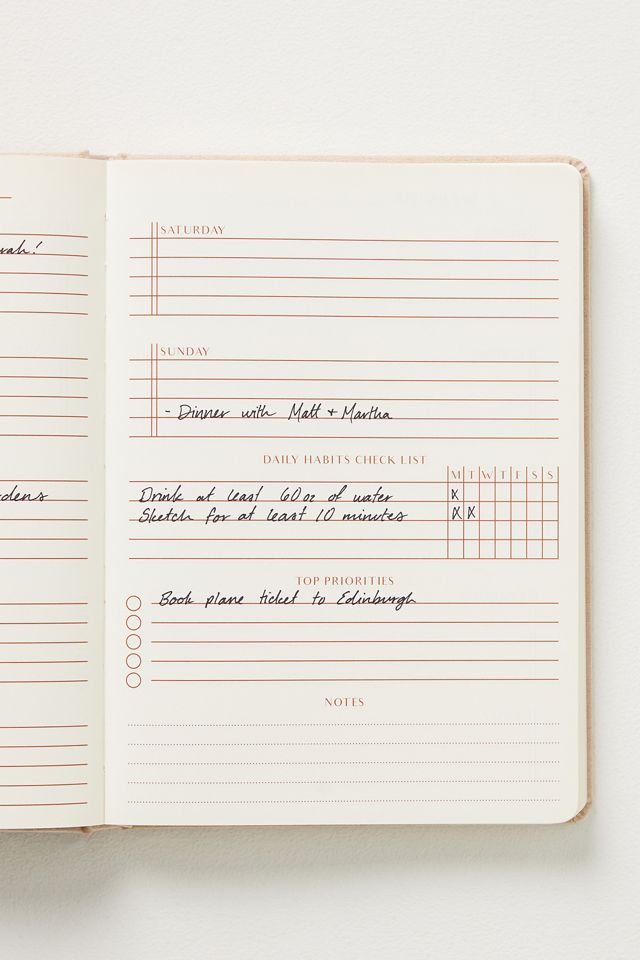 SATURDAY
SUNDAY
- Dinner with Matt + Martha
DAILY HABITS CHECK LIST
M T W T F S S
Drink at least 60oz of water X
Sketch for at least 10 minutes X X
TOP PRIORITIES
Book plane ticket to Edinburgh
NOTES